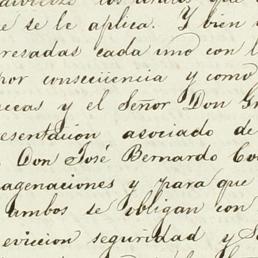 los
se le aplica. Y bien
resadas cada uno con l
por consecuencia y como
ceas y el Señor Don Gr
presentacion asociado de
Don José Bernardo Co
agenaciones y para que
ambos se obligan con
eviccion seguridad y S